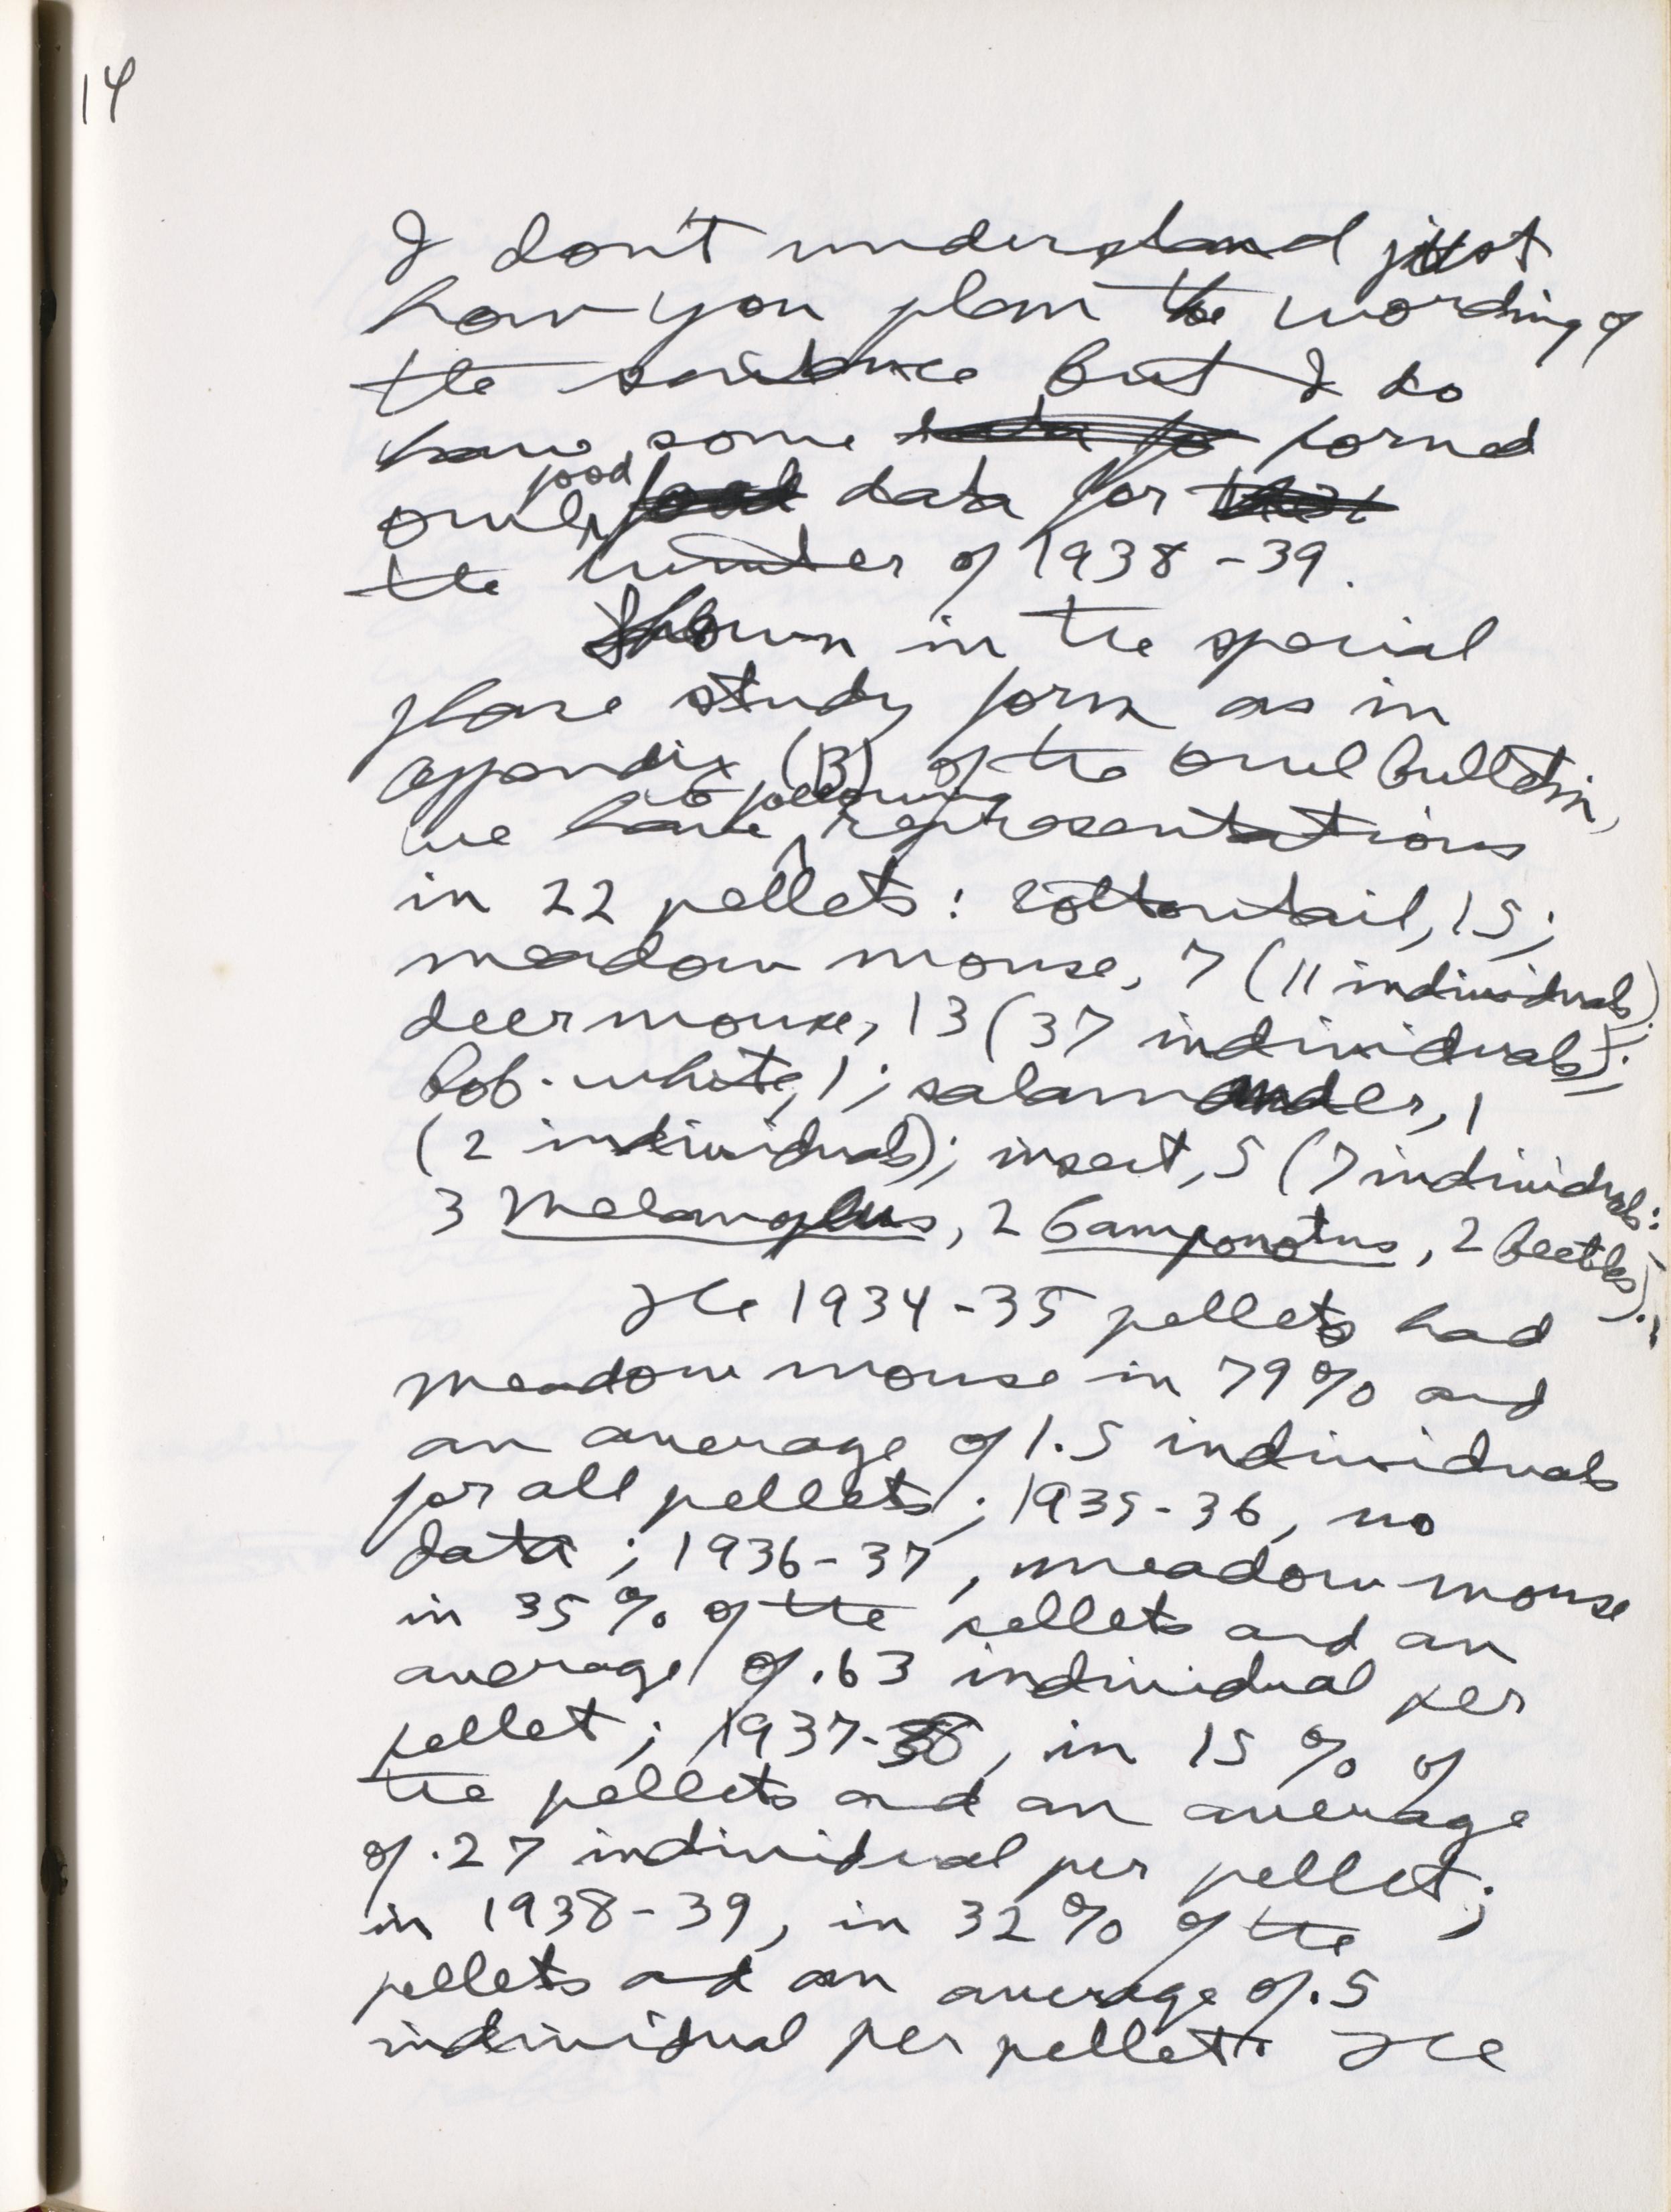 14
I don't understand just
how you plan the wording of
the sentence but I do
have some horned
owl food data for
the winter of 1938-39.
Shown in the special
phase study form as in
appendix (B) of the owl bulletin,
we have following representations
in 22 pellets: cottontail, 15;
meadow mouse, 7 (11 individuals);
deer mouse, 13 (37 individuals);
bob-white, 1; salamander, 1
(2 individuals); insect, 5 (7 individuals:
3 Melanoplus, 2 Camponotus, 2 beetles).
The 1934-35 pellets had
meadow mouse in 79% and
an average of 1.5 individuals
for all pellets; 1935-36, no
data; 1936-37, meadow mouse
in 35% of the pellets and an
average of .63 individual per
pellet; 1937-38, in 15% of
the pellets and an average
of .27 individual per pellet;
in 1938-39, in 32% of the
pellets and an average of .5
individual per pellet. The